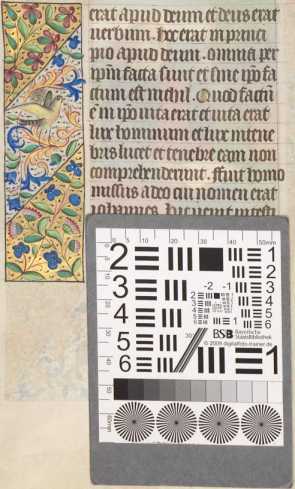 erat apud deum et deus erat
uerbum. hoc erat in princi
pio apud deum. omnia per
ipm facta sunt et sine ipo fa
ctum est nichil. Quod factū
ē in ipo uita erat et uita erat
lux hominum et lux in tene
bris lucet et tenebre eam non
comprehenderunt. ffuit homo
missus a deo cui nomen erat
iohannes. hic uenit in testi
0 5 10 20 30 40 50mm
2 1
3 2
4 3
5 4
6 5
6
-2 -1
BSB Bayerische
StaatsBibliothek
© 2009 digitalfoto-trainer.de
1